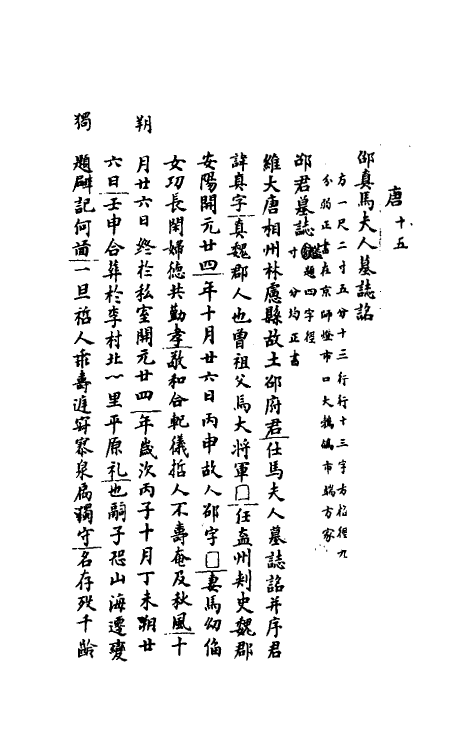 唐十五
邵真馬夫人墓誌銘
方一尺二寸五分十三行行十三字方格徑九
分弱正書在京師燈市口大鵓鴿市端方家
邵君墓誌蓋題四字徑
寸分均正書
維大唐相州林慮縣故士邵府君任馬夫人墓誌銘并序君
諱真字真魏郡人也曾祖父馬大將軍囗任益州刺史魏郡
安陽開元廿四年十月廿六日丙申故人邵字囗妻馬幼脩
女功長閑婦德共勤孝敬和合軌儀哲人不壽奄及秋風十
月廿六日終於私室開元廿四年歲次丙子十月丁未朔廿
朔
六日壬申合葬於李村北一里平原礼也嗣子恐山海遷變
題辟記何酋一旦哲人乖壽遐窀穸泉扃獨守名存殁千齡
獨